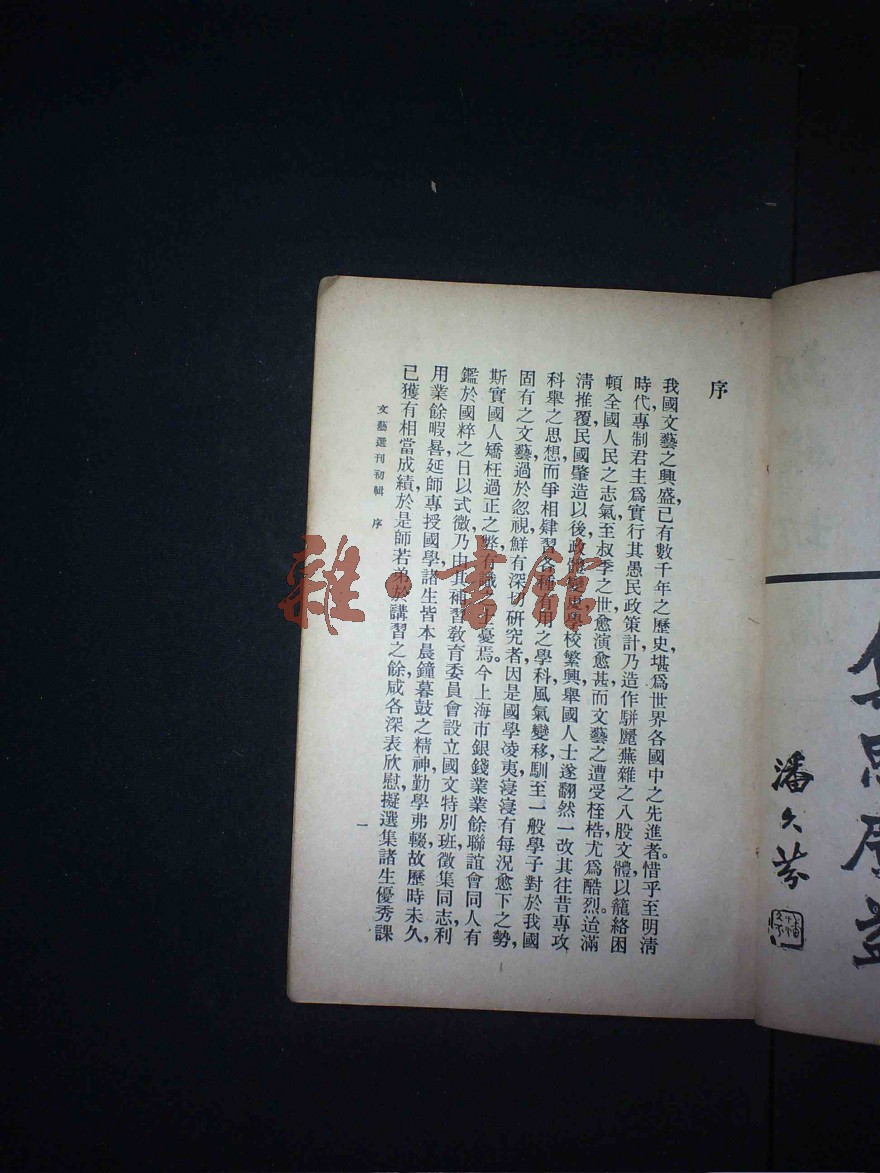 集思廣益
潘久芬
序
我國文藝之興盛，已有數千年之歷史，堪爲世界各國中之先進者。惜乎至明淸
時代，專制君主爲實行其愚民政策計，乃造作駢麗蕪雜之八股文體，以籠絡困
頓全國人民之志氣，至叔季之世，愈演愈甚，而文藝之遭受桎梏，尤爲酷烈。迨滿
淸推覆，民國肇造以後，政體變更，學校繁興，舉國人士，遂翻然一改其往昔專攻
科舉之思想，而爭相肄習各種有用之學科，風氣變移，馴至一般學子，對於我國
固有之文藝，過於忽視，鮮有深切研究者，因是國學凌夷，寖寖有每況愈下之勢，
斯實國人矯枉過正之弊，有識之士憂焉。今上海市銀錢業業餘聯誼會同人，有
鑑於國粹之日以式微，乃由其補習敎育委員會設立國文特別班，徵集同志，利
用業餘暇晷，延師專授國學，諸生皆本晨鐘暮鼓之精神，勤學弗輟，故歷時未久，
已獲有相當成績，於是師若弟於講習之餘，咸各深表欣慰，擬選集諸生優秀課
文藝選刊初輯 序
一
雜·書館